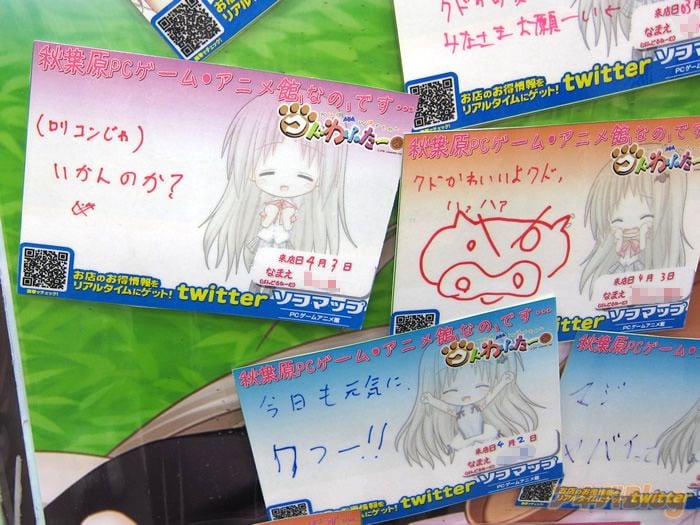 みなさまお願ーい
来店日03月
なまえ
PCゲーム
お店のお得情報を
リアルタイムにゲット!
twitter
ソフマップ
秋葉原PCゲーム・アニメ館なの、です…
くドわふたー
(ロリコンじゃ)
いかんのか?
来店日4月3日
なまえ
お店のお得情報を
リアルタイムにゲット!
twitter
ソフマップ
PCゲームアニメ館
秋葉原PCゲーム・アニメ館なの、です
クドかわいいよクド、
ハァハァ
来店日4月3日
なまえ
twitter
ソフマップ
PCゲームアニメ館
秋葉原PCゲーム・アニメ館なの、です…
くドわふたー
今日も元気に、
わふー!!
来店日4月2日
なまえ
お店のお得情報を
リアルタイムにゲット!
twitter
ソフマップ
PCゲームアニメ館
秋葉原PCゲーム
マジ
ヤバイ
お店のお得情報を
リアルタイムにゲット!
twitter